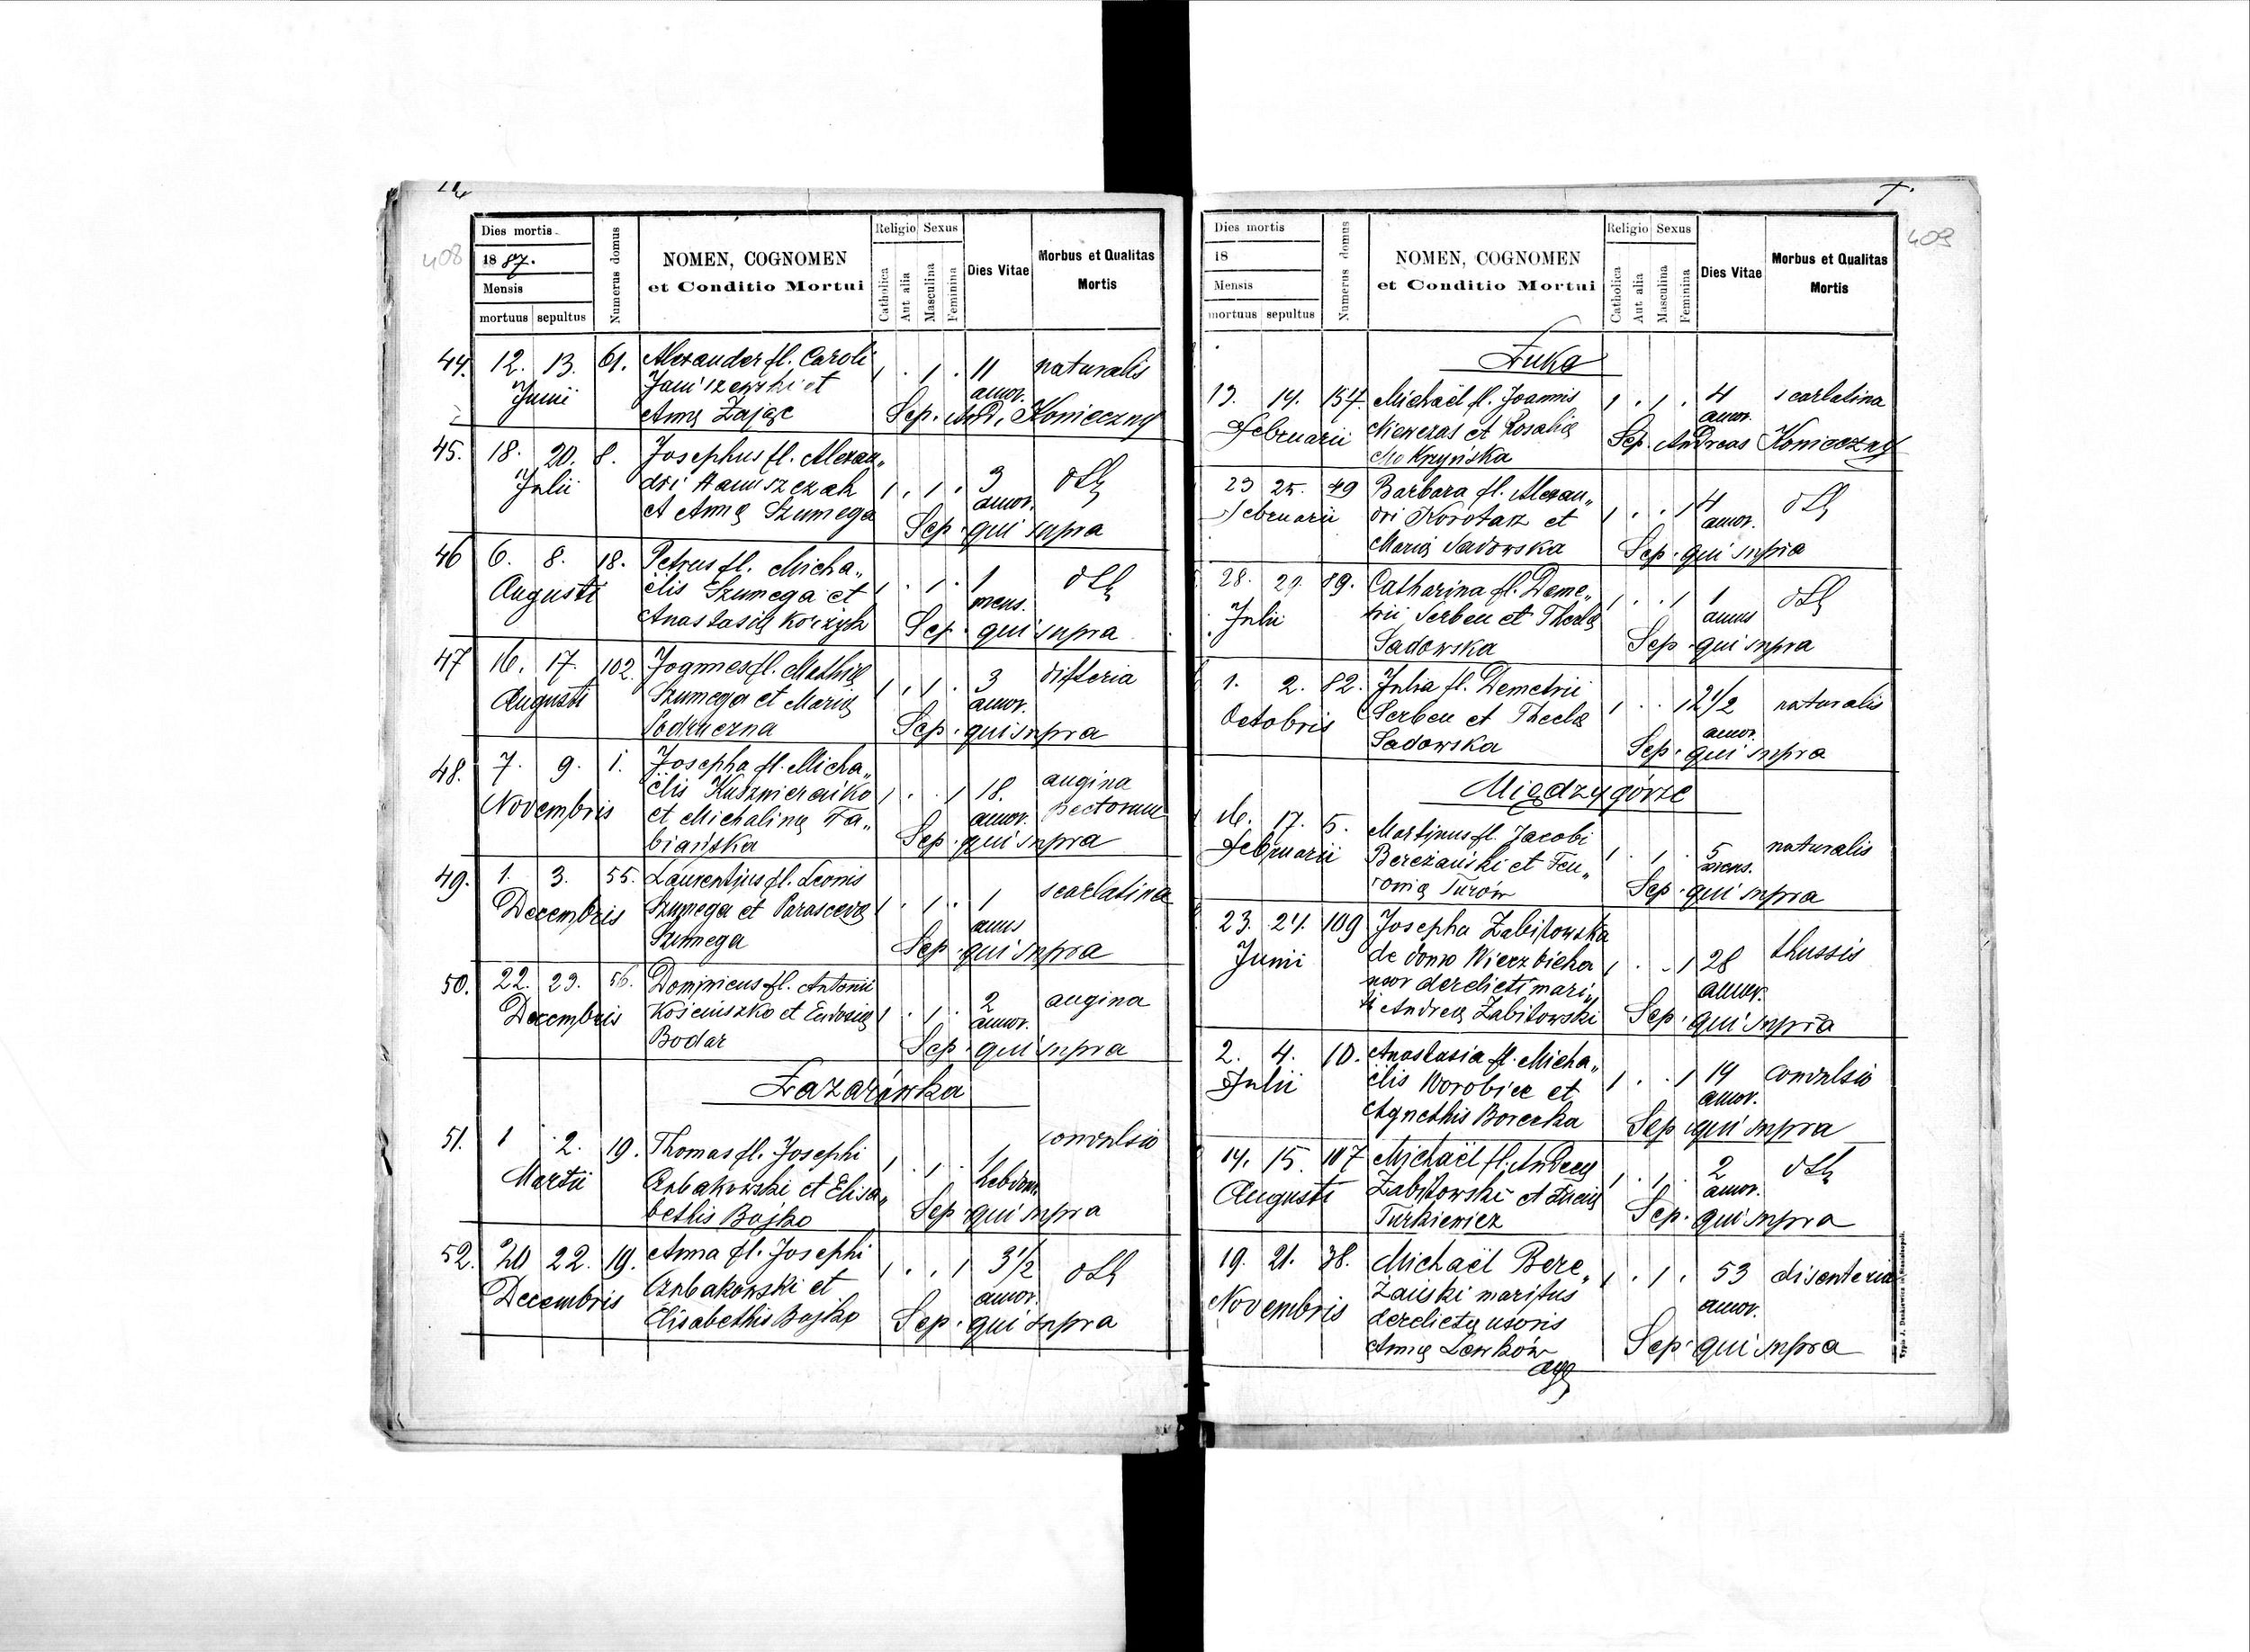 408
Dies mortis
1887.
Mensis
mortuus sepultus
Numerus domus
NOMEN, COGNOMEN
et Conditio Mortui
Religio Sexus
Catholica
Aut alia
Masculina
Feminina
Dies Vitae
Morbus et Qualitas
Mortis
44. 12. 13. 61. Alexander fl. Caroli 1 . 1 . 11 naturalis
Junii Janiszewski et annor.
Annę Zając Sep. And. Konieczny
45. 18. 20. 8. Josephus fl. Alexan„
Julii dri Haniszczak 1 . 1 . 3 dtt
et Annę Szumega annor.
Sep. qui supra
46 6. 8. 18. Petrus fl. Micha„
Augusti ëlis Szumega et 1 . 1 . 1 dtt
Anastasię mens.
Sep. qui supra
47 16. 17. 102. Joannes fl. Mathię 1 . 1 . 3 difteria
Augusti Szumega et Marię annor.
Sep. qui supra
48. 7. 9. 1. Josepha fl. Micha„ angina
Novembris ëlis 1 . . 1 18. pectorum
et Michalinę Fa„ annor.
biańska Sep. qui supra
49. 1. 3. 55. Laurentius fl. Leonis scarlatina
Decembris Szumega et Parascevę 1 . 1 . 1
Szumega annus
Sep. qui supra
50. 22. 23. 56. Dominicus fl. Antonii angina
Decembris Kościuszko et Eudosię 1 . 1 . 2
Bodar annor.
Sep. qui supra
Łazarówka
51. 1 2. 19. Thomas fl. Josephi convulsio
Martii Czubakowski et Elisa„ 1 . 1 . 1
bethis Bojko hebdom.
Sep. qui supra
52. 20 22. 19. Anna fl. Josephi 1 . . 1 3 1/2 dtt
Decembris Czubakowski et annor.
Elisabethis Bojko Sep. qui supra
409
Dies mortis
18
Mensis
mortuus sepultus
Numerus domus
NOMEN, COGNOMEN
et Conditio Mortui
Religio Sexus
Catholica
Aut alia
Masculina
Feminina
Dies Vitae
Morbus et Qualitas
Mortis
Łuka
13. 14. 154. Michaël fl. Joannis 1 . 1 . 4 scarlatina
Februarii et Rosalię annor.
Mokrzyńska Sep. Andreas Konieczny
23 25. 49 Barbara fl. Alexan„
Februarii dri Korotasz et 1 . . 1 4 dtt
Marię Sadowska annor.
Sep. qui supra
28. 29. 89. Catharina fl. Deme„
Julii trii Serben et Theclę 1 . . 1 1 dtt
Sadowska annus
Sep. qui supra
1. 2. 82. Julia fl. Demetrii
Octobris Serben et Theclę 1 . . 1 2 1/2 naturalis
Sadowska annor.
Sep. qui supra
Międzygórze
16. 17. 5. Martinus fl. Jacobi
Februarii Bereżański et Feu„ 1 . 1 . 5 naturalis
ronię Turów mens.
Sep. qui supra
23. 24. 109 Josepha Zabitowska
Junii de domo Wierzbicka 1 . . 1 28 thussis
uxor derelicti mari„ annor.
ti Andreę Zabitowski Sep. qui supra
2. 4. 10. Anastasia fl. Micha„
Julii ëlis Worobiec et 1 . . 1 14 convulsio
Agnethis Borecka annor.
Sep. qui supra
14. 15. 107 Michaël fl. Andreę
Augusti Zabitowski et Łucię 1 . 1 . 2 dtt
Turkiewicz annor.
Sep. qui supra
19. 21. 38. Michaël Bere„ 1 . 1 . 53 disenteria
Novembris żański maritus annor.
derelictę uxoris
Annę Lewków Sep. qui supra